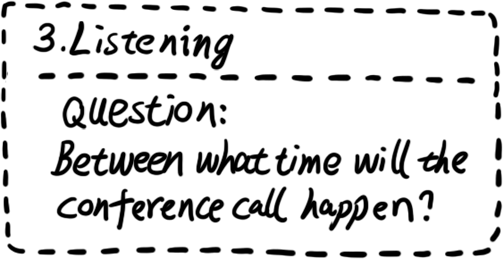 3.Listening
Question:
Between what time will the
conference call happen?